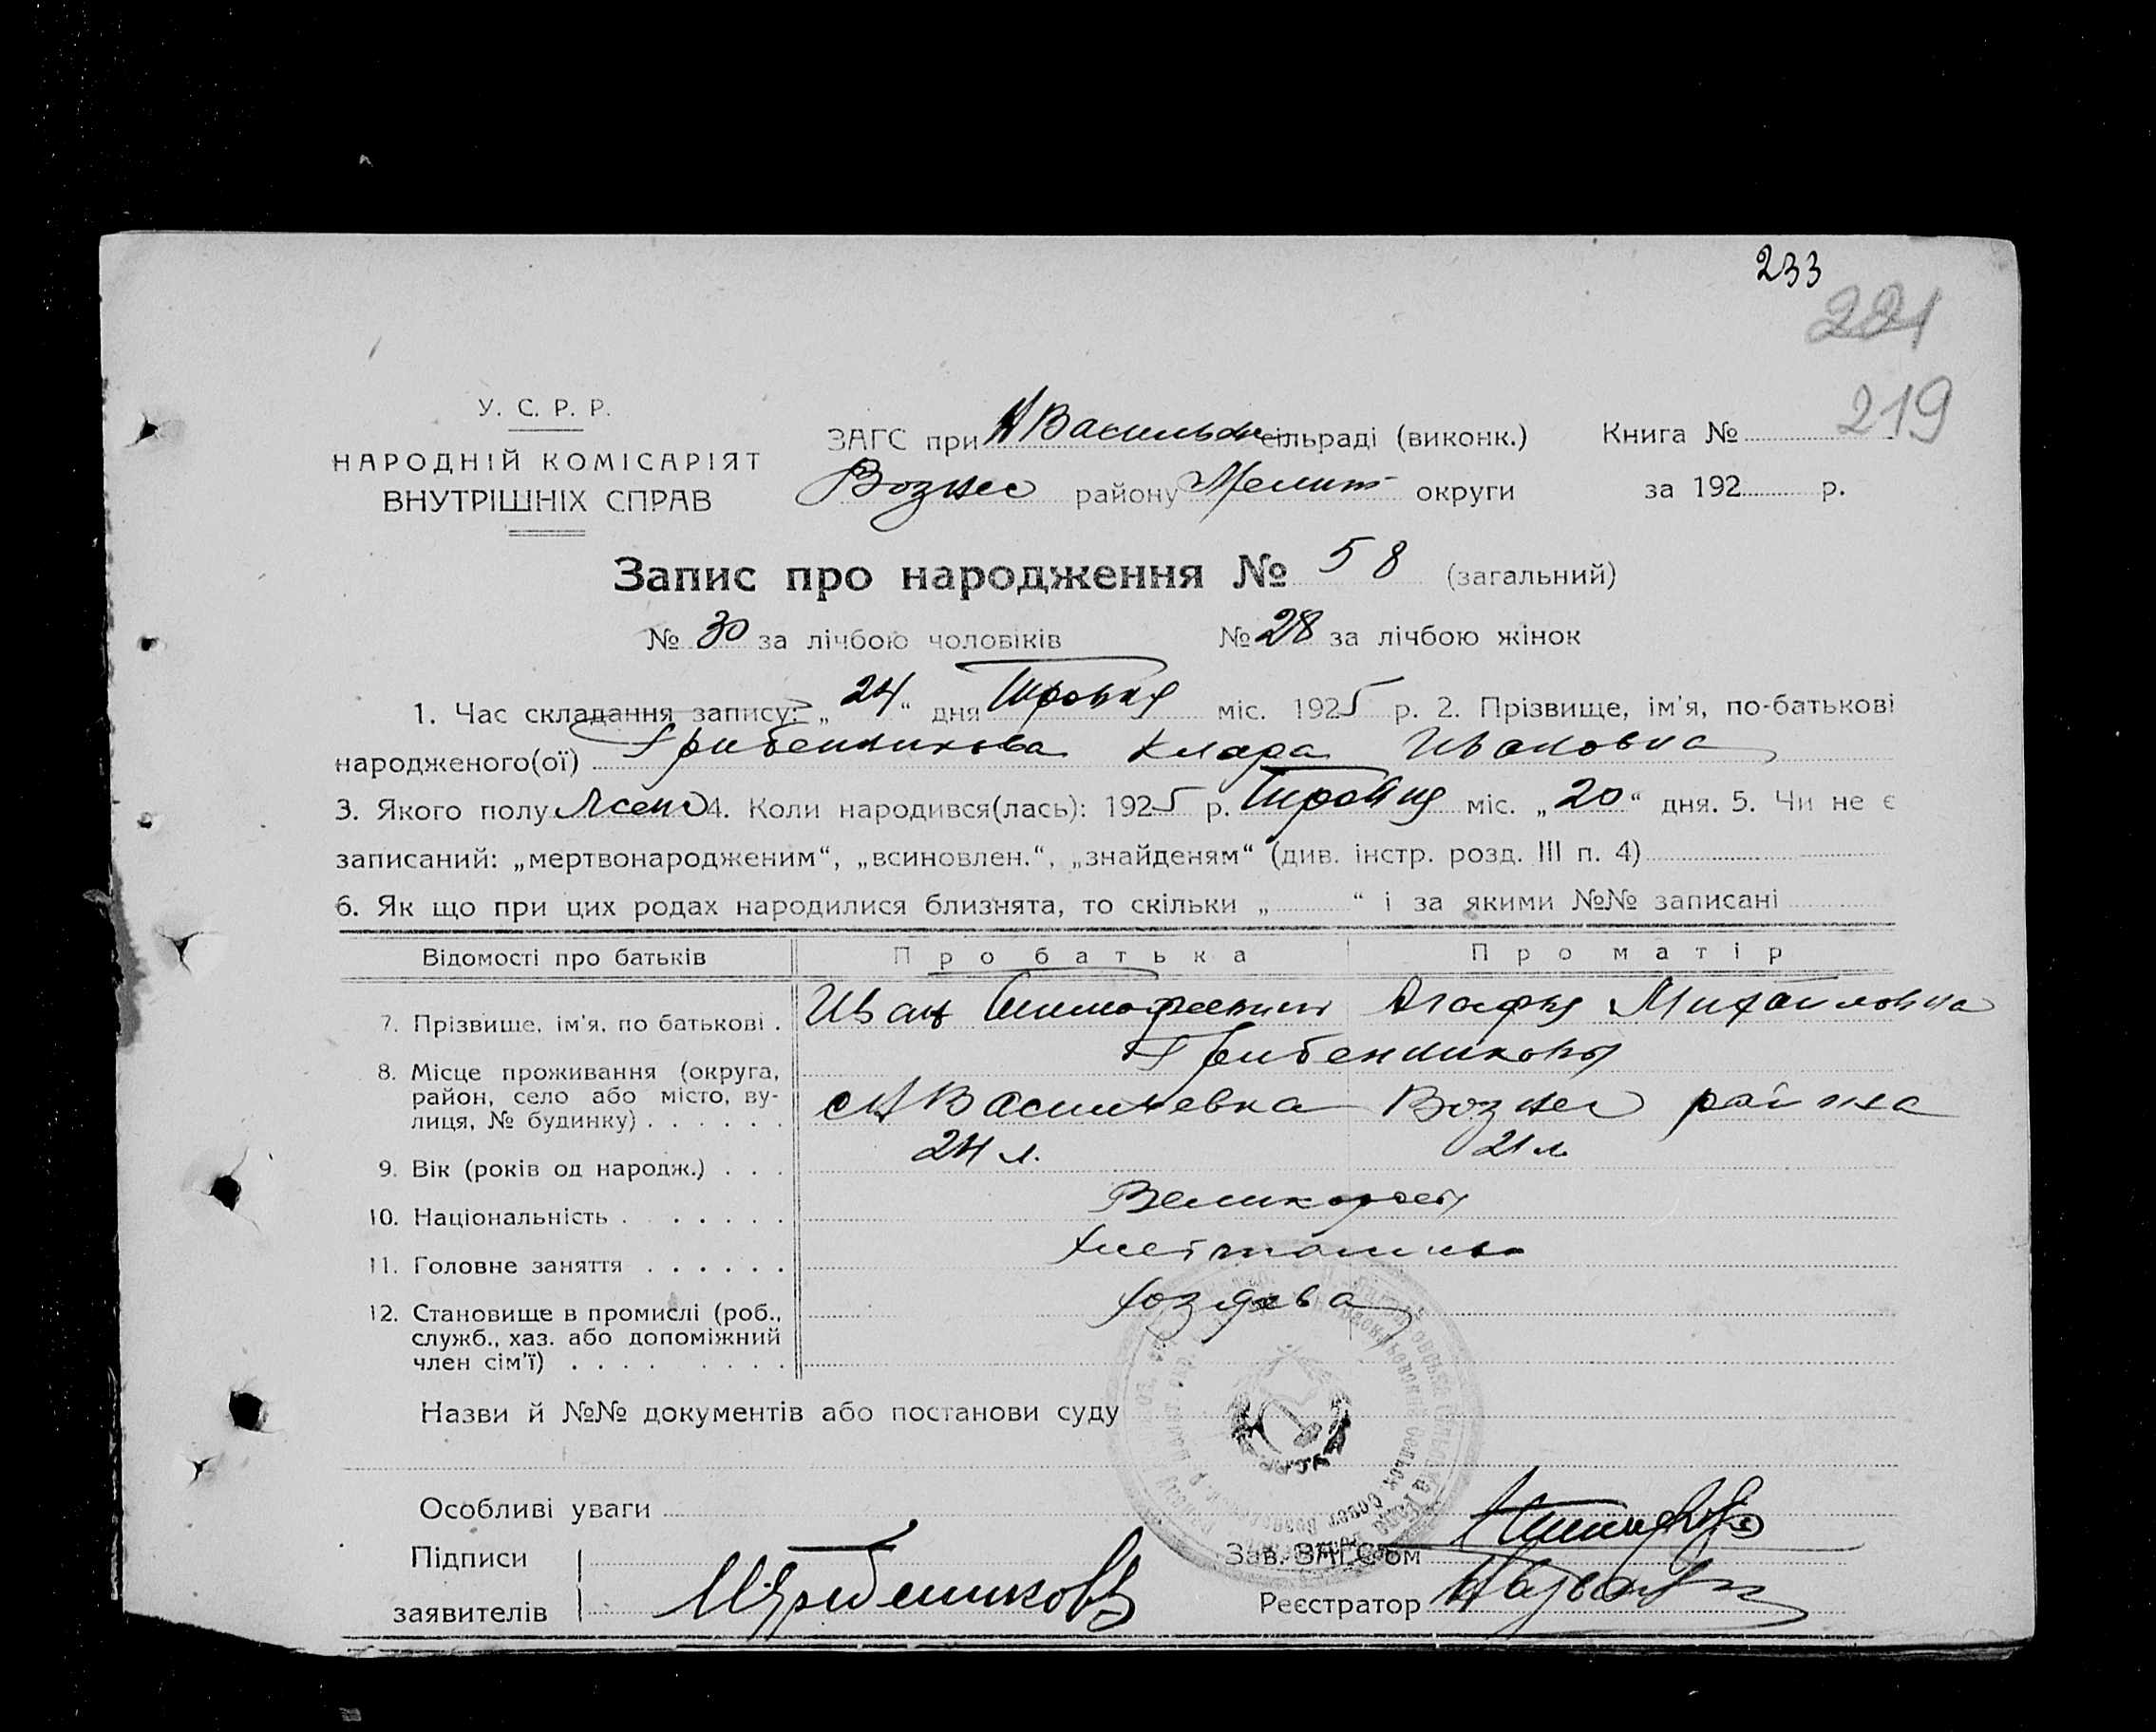 233
221
219
У. С. Р. Р.
НАРОДНІЙ КОМІСАРІЯТ
ВНУТРІШНІХ СПРАВ
ЗАГС при Н Васильев сільраді (виконк.) Книга №
Вознес району Мелит округи за 192 р.
Запис про народження № 58 (загальний)
№ 30 за лічбою чоловіків № 28 за лічбою жінок
1. Час складання запису: „24“ дня Травня міс. 1925 р. 2. Прізвище, ім'я, по-батькові
народженого(ої) Грибенникова Клара Ивановна
3. Якого полу Жен 4. Коли народився(лась): 1925 р. Травня міс. „20“ дня. 5. Чи не є
записаний: „мертвонародженим“, „всиновлен.“, „знайденям“ (див. інстр. розд. III п. 4)
6. Як що при цих родах народилися близнята, то скільки „ “ і за якими №№ записані
Відомості про батьків Про батька Про матір
7. Прізвище, ім'я, по батькові . Иван Тимофеевич Агафья Михайловна
Грибенниковы
8. Місце проживання (округа,
район, село або місто, ву-
лиця, № будинку) . . . . . . с Н Васильевка Вознес района
9. Вік (років од народж.) . . . 24 л. 21 л.
10. Національність . . . . . . . Великоросы
11. Головне заняття . . . . . .
12. Становище в промислі (роб.,
служб., хаз. або допоміжний
член сім'ї) . . . . . . . .
Назви й №№ документів або постанови суду
Особливі уваги
Підписи
заявителів И Грибенников
Зав. ЗАГС'ом
Реєстратор